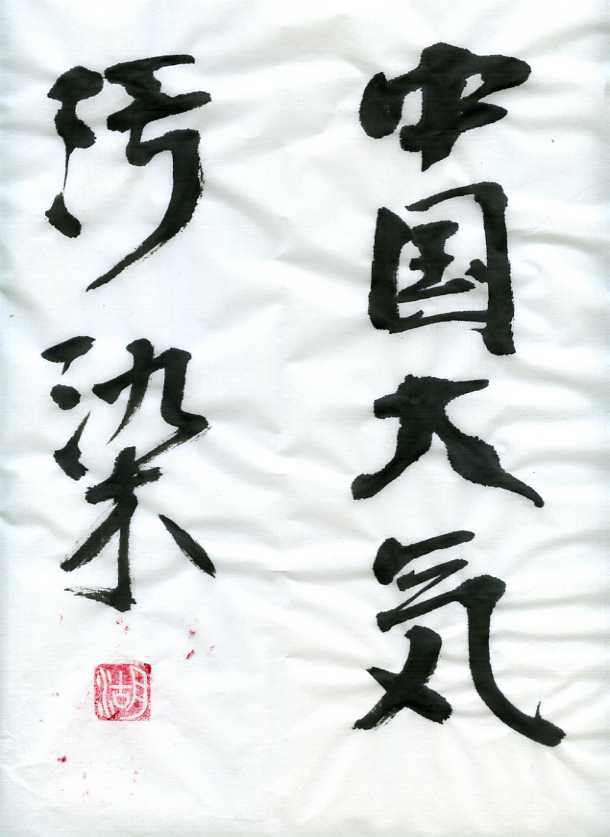 中国大気
汚染
湖